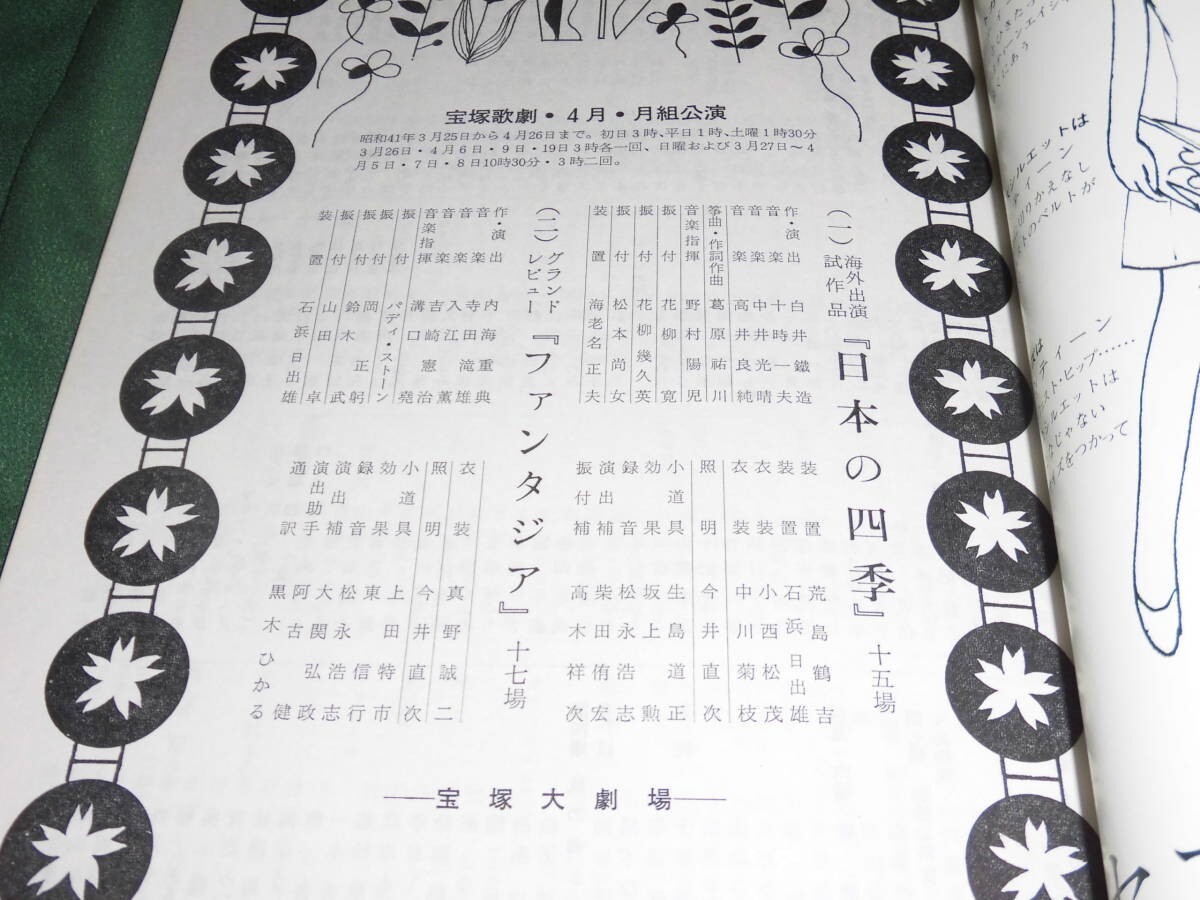 宝塚歌劇・4月・月組公演
昭和41年3月25日から4月26日まで。初日3時、平日1時、土曜1時30分
3月26日・4月6日・9日・19日3時各一回、日曜および3月27日〜4
月5日・7日・8日10時30分・3時二回。
(一) 海外出演試作品 『日本の四季』 十五場
作・演出 白井鐵造
音楽 十時一夫
音楽 中井光晴
音楽 高井良純
箏曲・作詞作曲 葛原祐川
音楽指揮 野村陽児
振付 花柳寛
振付 花柳幾久英
振付 松本尚女
装置 海老名正夫
装置 荒島鶴吉
装置 石浜日出雄
衣装 小西松茂
衣装 中川菊枝
照明 今井直次
小道具 生島道正
効果 坂上勲
録音 松永浩志
演出補 柴田侑宏
振付補 高木祥次
(二) グランドレビュー 『ファンタジア』 十七場
作・演出 内海重典
音楽 寺田滝雄
音楽 入江薫
音楽 吉崎憲治
音楽指揮 溝口堯
振付 パディ・ストーン
振付 岡正躬
振付 鈴木武
振付 山田卓
装置 石浜日出雄
衣装 真野誠二
照明 今井直次
小道具 上田特市
効果 東信行
録音 松永浩志
演出補 大関弘政
演出助手 阿古健
通訳 黒木ひかる
──宝塚大劇場──
シルエットは
ティーン
切りかえなし
ストのベルトが
ティーン
スト・ヒップ……
シルエットは
じゃない
スをつかって